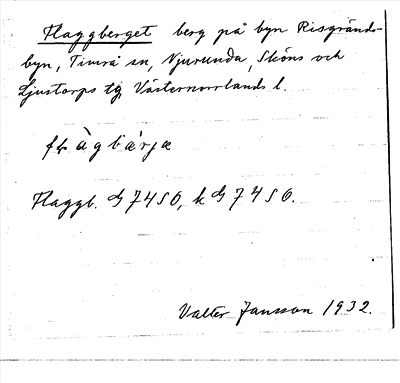 Flaggberget berg på byn Risgränds-
byn, Timrå sn, Njurunda, Sköns och
Ljustorps tg Västernorrlands l.
Flaggb. G 7450, k G 7450.
Valter Jansson 1932.